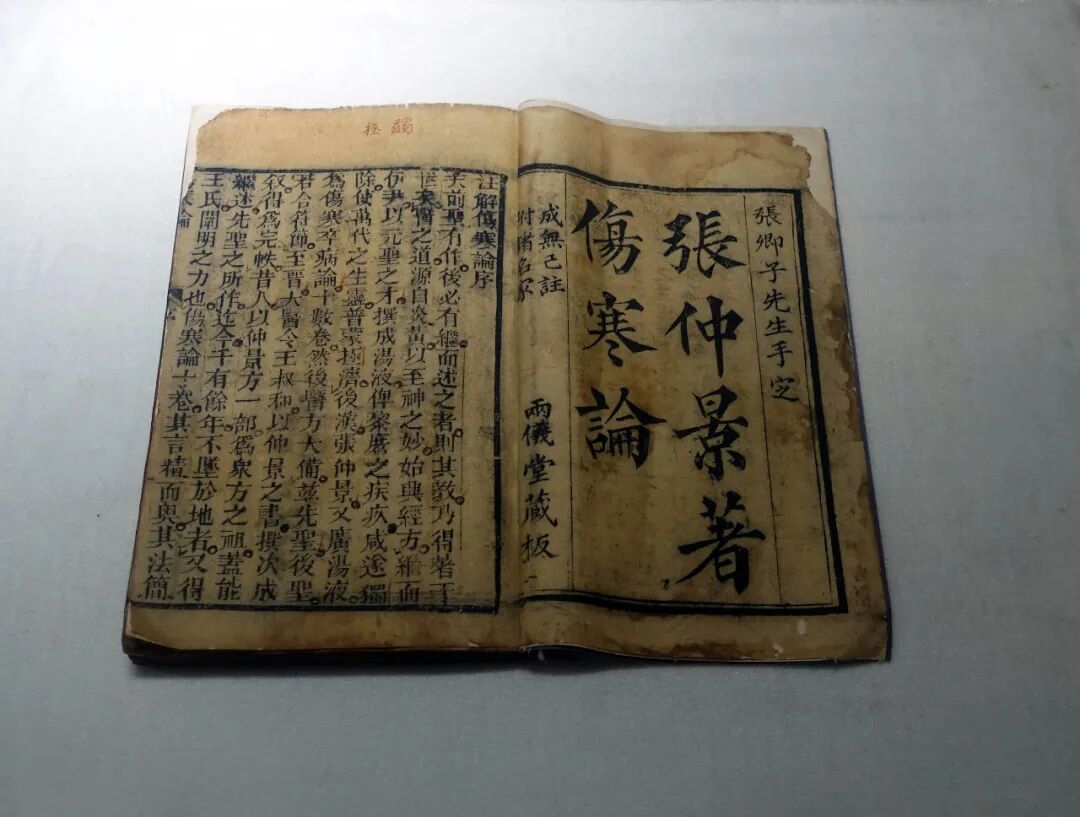 張卿子先生手定
張仲景著
傷寒論
成無己註
附諸名家
兩儀堂藏板
注解傷寒論序
夫前聖有作後必有繼而述之者則其教乃得著于
世矣醫之道源自炎黃以至神之妙始興經方繼而
伊尹以元聖之才撰成湯液俾黎庶之疾疚咸遂蠲
除使萬代之生靈普蒙拯濟後漢張仲景又廣湯液
為傷寒卒病論十數卷然後醫方大備茲先聖後聖
若合符節至晉大醫令王叔和以仲景之書撰次成
敘得為完帙昔人以仲景方一部為衆方之祖蓋能
繼述先聖之所作迄今千有餘年不墜於地者又得
王氏闡明之力也傷寒論十卷其言精而奥其法簡
蠲
拯